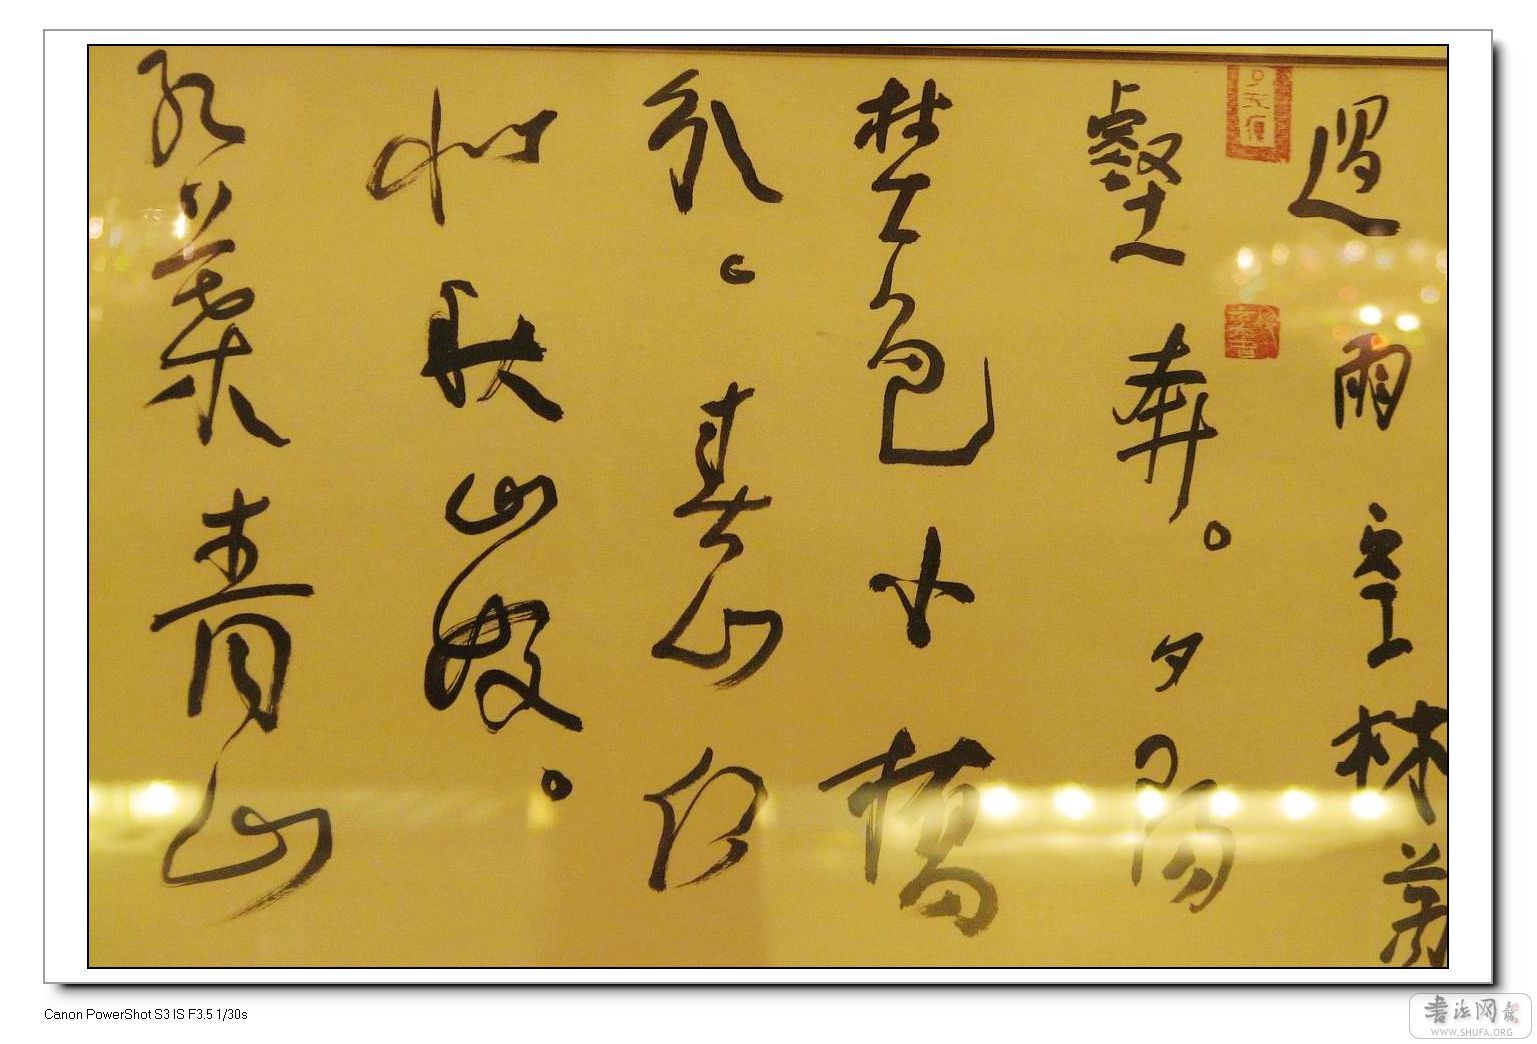 過雨空林萬
壑奔。夕陽
埜色小橋
分。春山何
似秋山好。
紅葉青山
Canon PowerShot S3 IS F3.5 1/30s
書法网
WWW.SHUFA.ORG